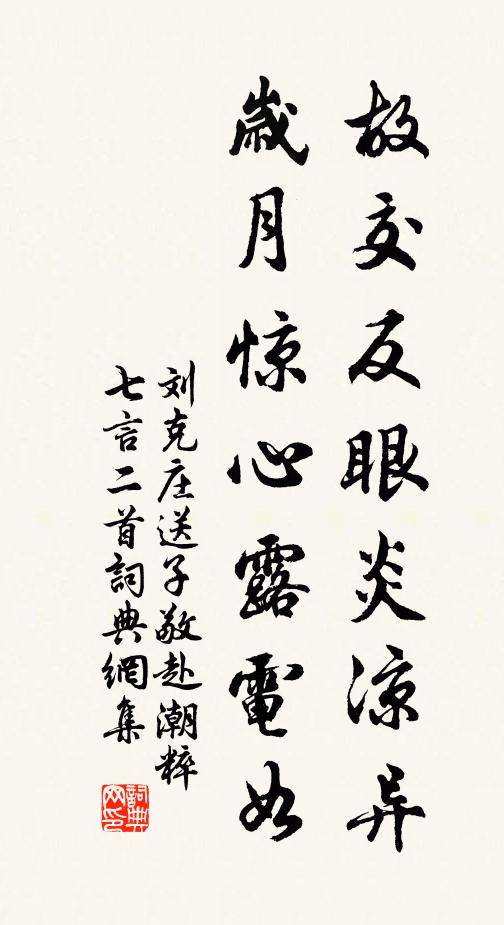 故交反眼炎凉异
岁月惊心露電如
刘克庄送子敬赴潮粹
七言二首詞典網集
詞典网印